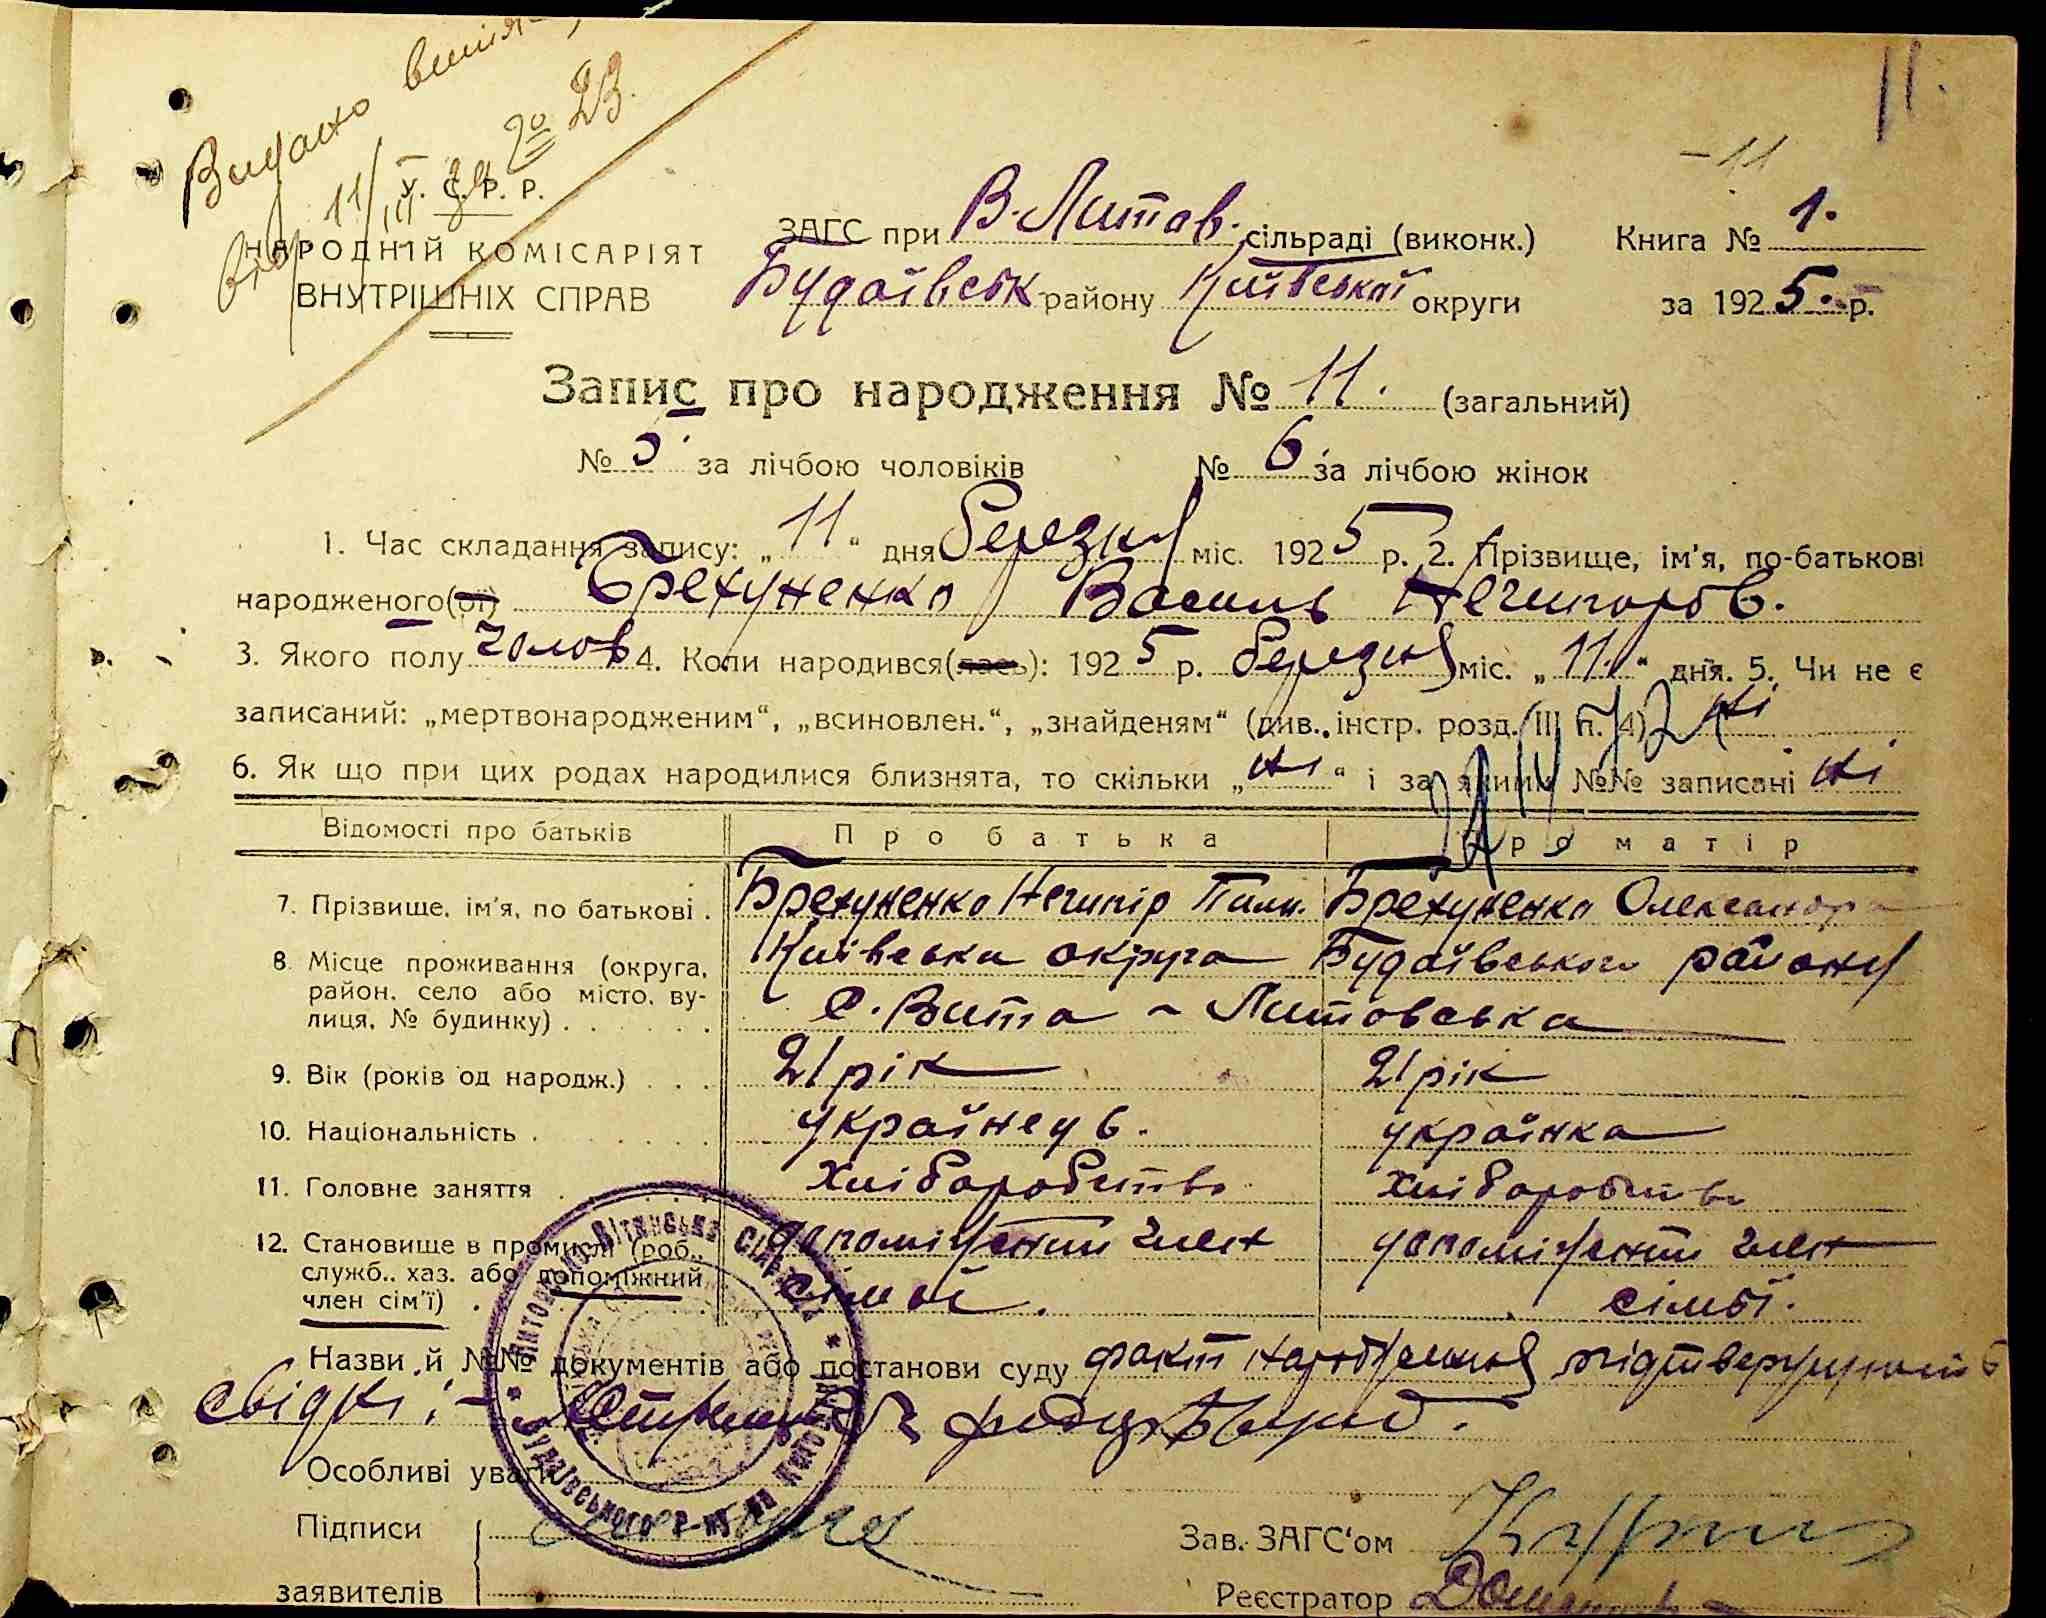 11.
Видано
-11
У. С. Р. Р.
НАРОДНІЙ КОМІСАРІЯТ
ВНУТРІШНІХ СПРАВ
ЗАГС при В-Литав. сільраді (виконк.) Книга № 1.
Будаївськ району Київської округи за 1925 р.
Запис про народження № 11. (загальний)
№ 5 за лічбою чоловіків № 6 за лічбою жінок
1. Час складання запису: „11“ дня березня міс. 1925 р. 2. Прізвище, ім'я, по-батькові
народженого(ої) Брехуненко Василь Нечипоров.
3. Якого полу чолов 4. Коли народився(лась): 1925 р. березня міс. „11.“ дня. 5. Чи не є
записаний: „мертвонародженим“, „всиновлен.“, „знайденям“ (див. інстр. розд. III п. 4) ні
6. Як що при цих родах народилися близнята, то скільки „ні“ і за якими №№ записані ні
Відомості про батьків Про батька Про матір
7. Прізвище, ім'я, по батькові . Брехуненко Нечипір Пили. Брехуненко Олександра
8. Місце проживання (округа, район, село або місто, вулиця, № будинку) . Київська округа Будаївського району
с. Вита - Литовська
9. Вік (років од народж.) . . . 21 рік 21 рік
10. Національність . українець. українка
11. Головне заняття хліборобство хліборобство
12. Становище в промислі (роб., служб., хаз. або допоміжний член сім'ї) . допоміжний член сімої. допоміжний член сімьї.
Назви й №№ документів або постанови суду факт народження підтверджують
свідки: -
Особливі уваги
Підписи
заявителів
Зав. ЗАГС'ом
Реєстратор